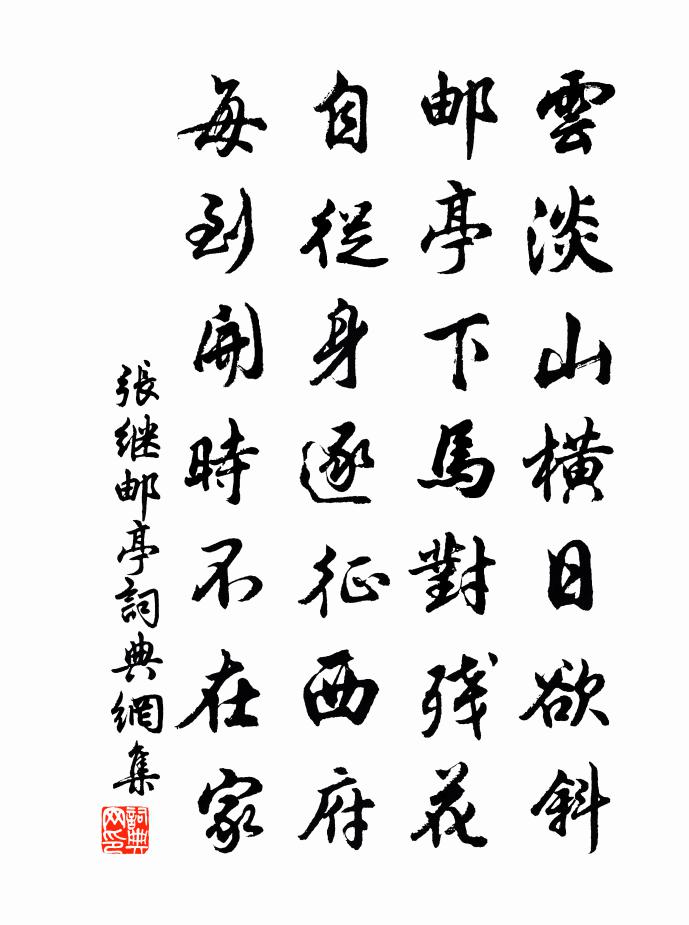 雲淡山橫日欲斜
邮亭下馬對残花
自從身逐征西府
每到開時不在家
張继邮亭詞典網集
詞典网印